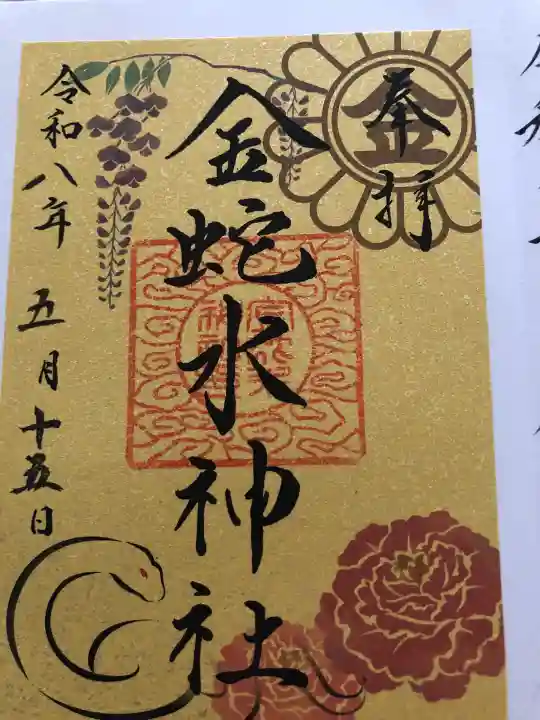 奉拝
金
金蛇水神社
令和八年 五月十五日